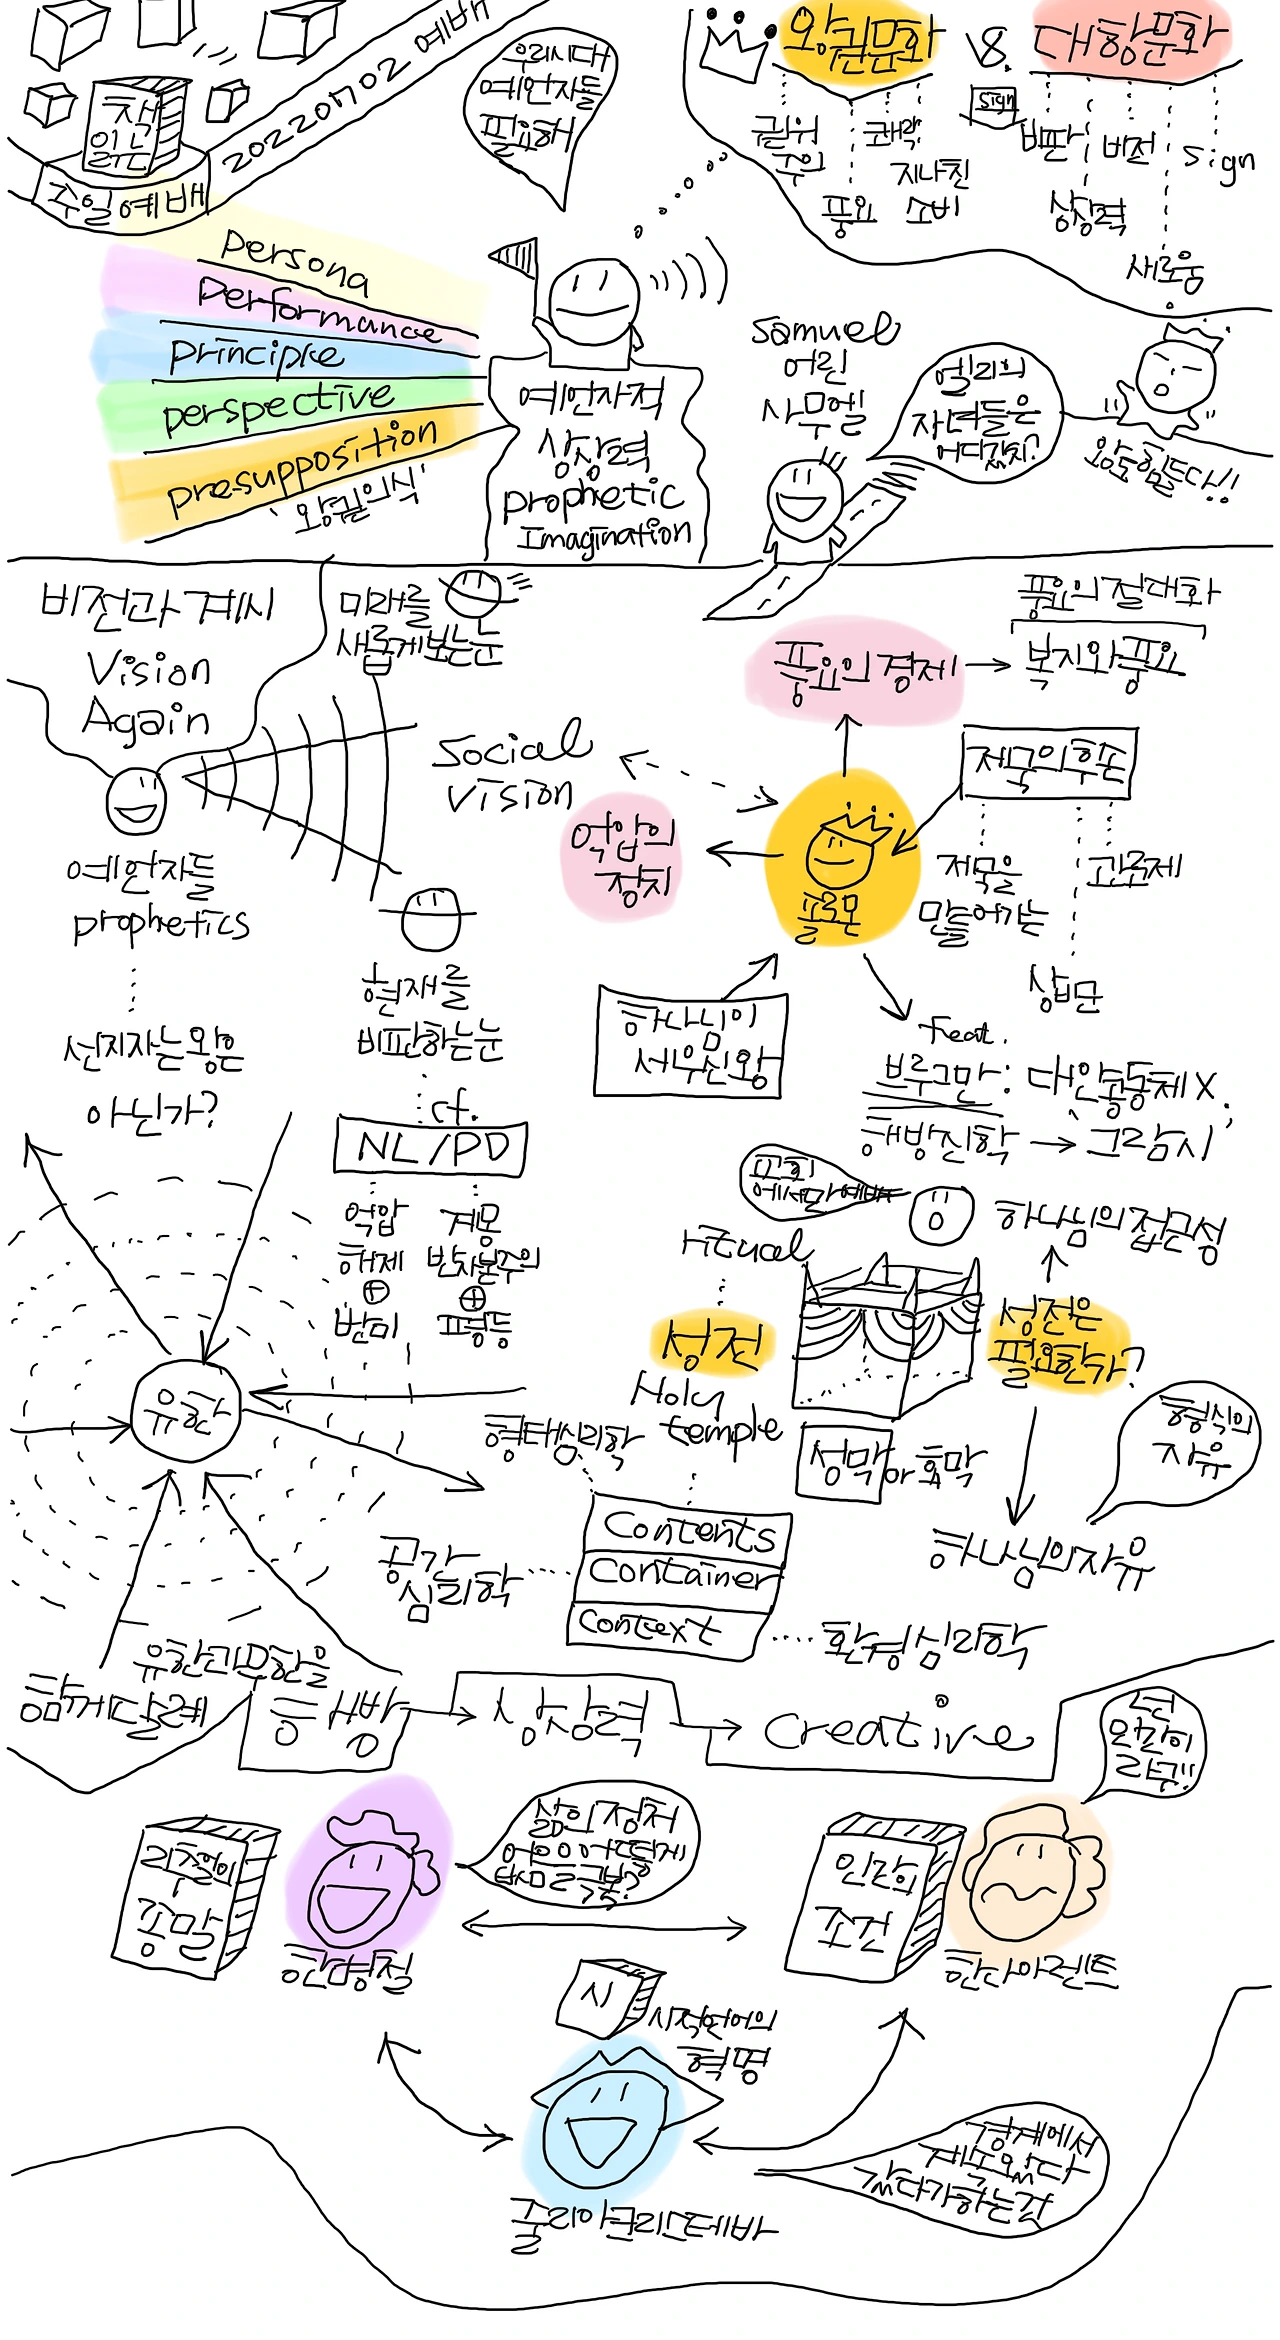 책
읽는
주일예배
20220702 예배
우리시대
예언자들
필요해
왕권문화
VS.
대항문화
sign
권위
주의
풍요
쾌락
지나친
소비
비판
상상력
비전
새로움
sign
persona
performance
principle
perspective
presupposition
'왕권의식'
예언자적
상상력
prophetic
Imagination
samuel
어린
사무엘
엘리의
자녀들은
어디갔지?
왕도힘들다!!
비전과 계시
Vision
Again
미래를
새롭게보는눈
social
vision
예언자들
prophetics
선지자는왕은
아닌가?
현재를
비판하는눈
cf.
NL/PD
억압
해제
+
반미
계몽
반자본주의
+
평등
풍요의 경제
풍요의절대화
복지와풍요
제국의후손
제국을
만들어가는
상비군
관료제
억압의
정치
솔로몬
하나님이
세우신왕
feat.
브루그만: 대안공동체 X,
해방신학 → 그람시
교회
에서만예배
ritual
성전
Holy
temple
하나님의접근성
성전은
필요한가?
성막 or 휘막
형식의
자유
하나님의자유
형태심리학
공간
심리학
Contents
Container
Context
환경심리학
유한
유한과무한을
함께다룰때
증폭방
상상력
creative
리추얼의
종말
한병철
삶의정처
없음을어떻게
극복?
인간의
조건
한나아렌트
시
시적언어의
혁명
줄리아크리스테바
경계에서
계속왔다
갔다가하는것